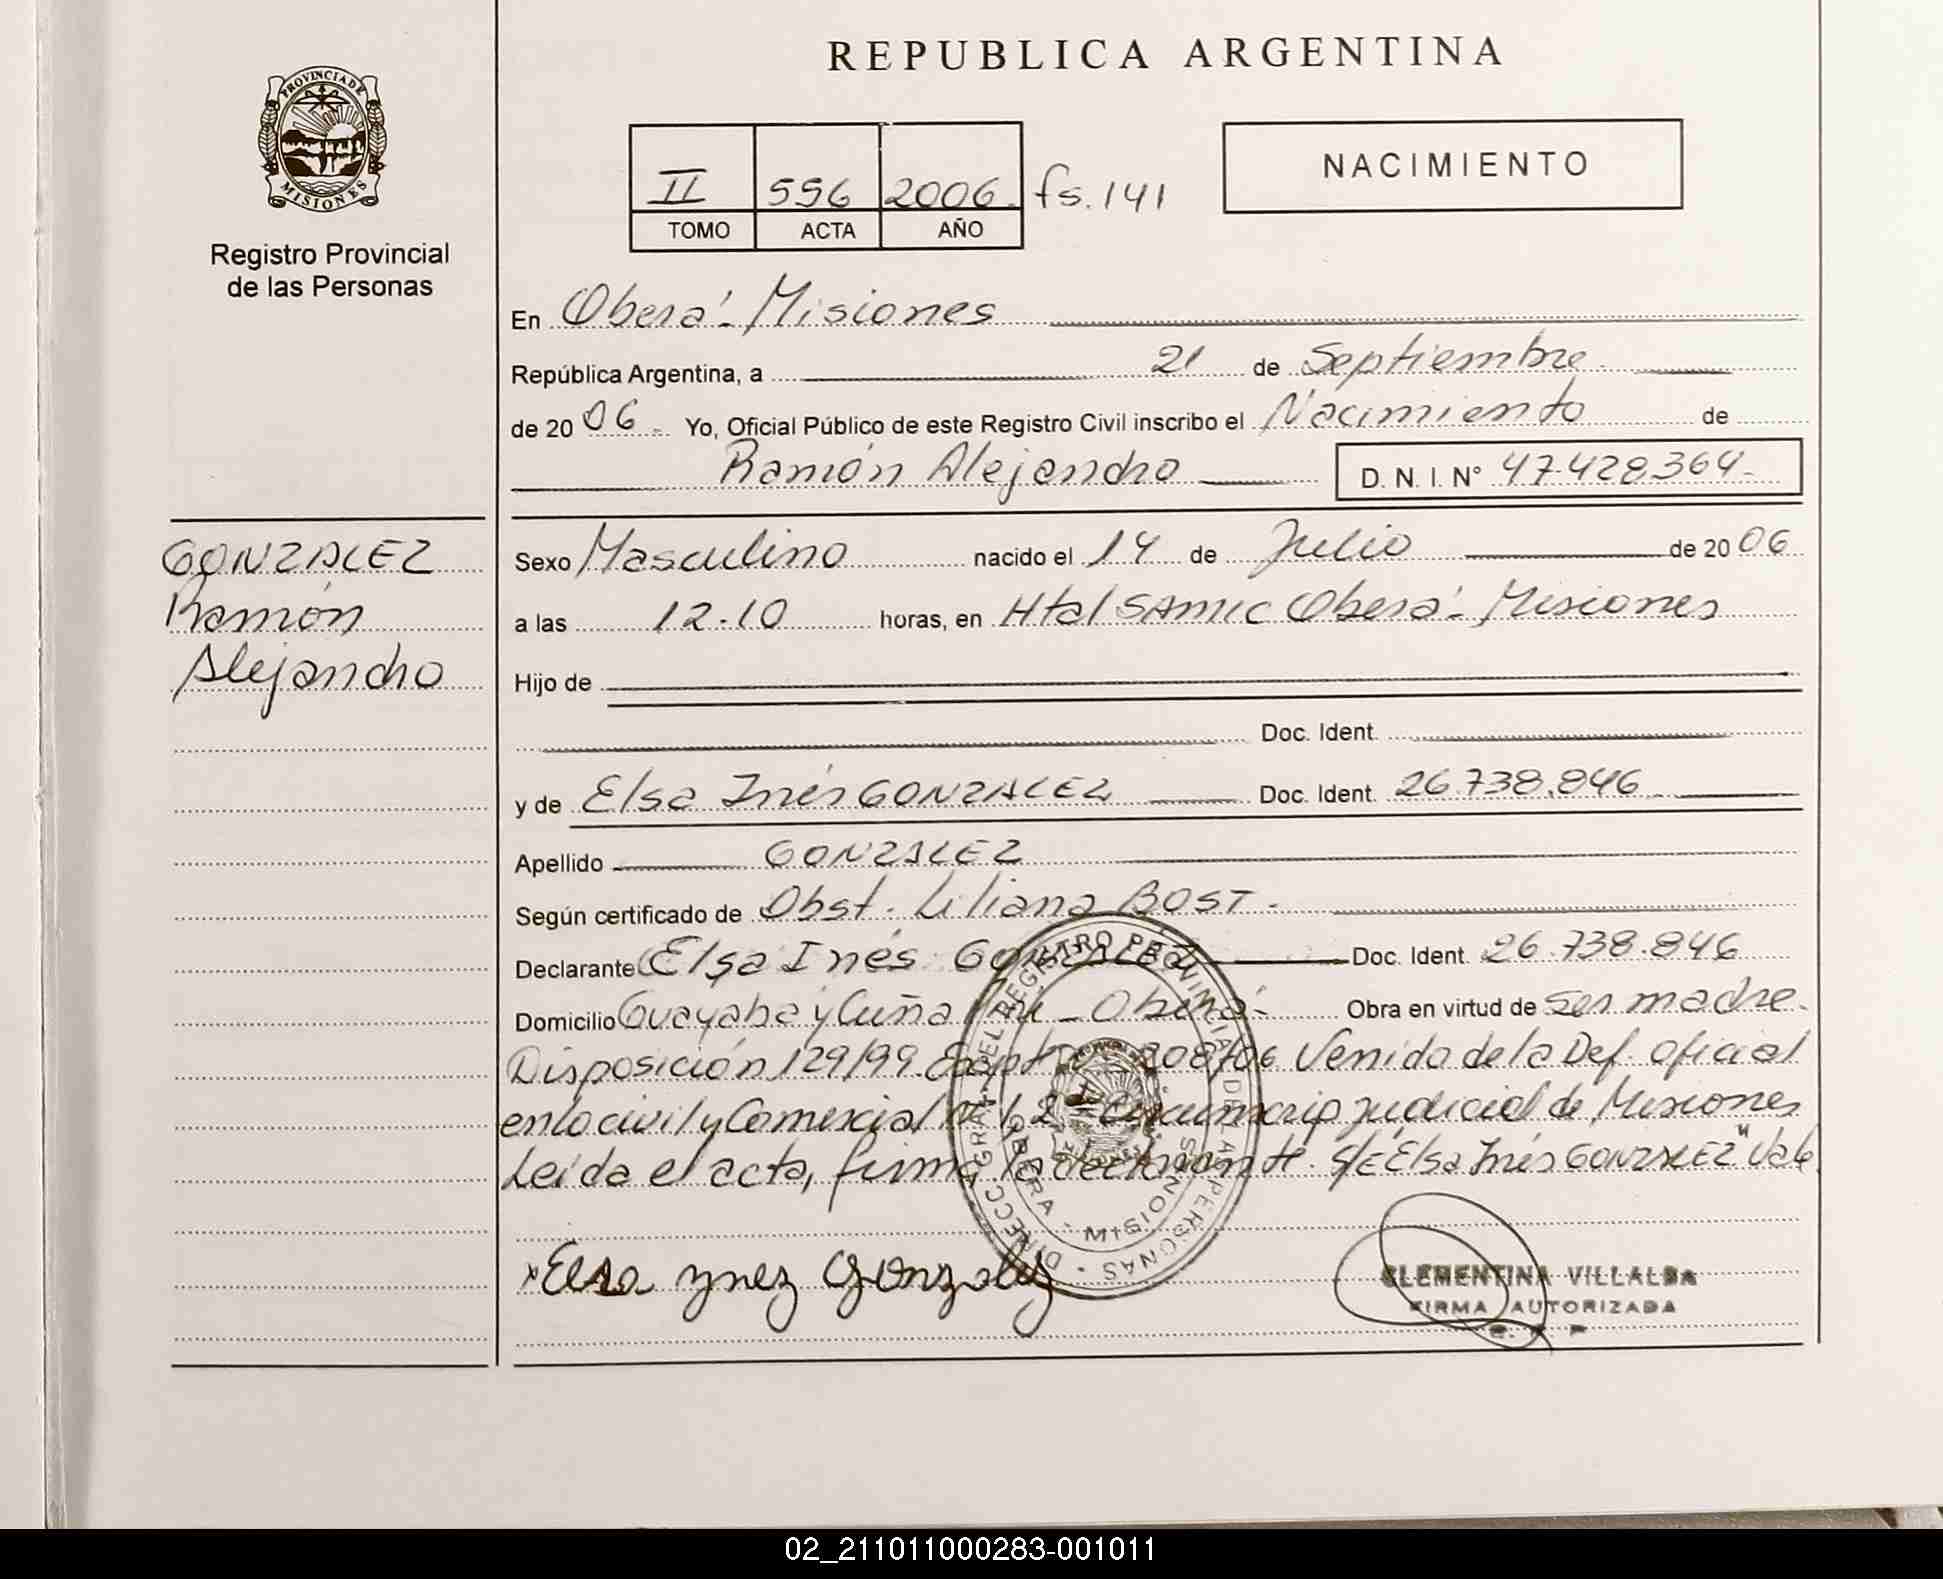 REPUBLICA ARGENTINA
PROVINCIA DE MISIONES
Registro Provincial
de las Personas
II 556 2006. fs. 141
TOMO ACTA AÑO
NACIMIENTO
En Oberá - Misiones
República Argentina, a 21 de Septiembre
de 2006. Yo, Oficial Público de este Registro Civil inscribo el Nacimiento de
Ramón Alejandro D. N. I. N° 47.428.364-
GONZALEZ
Ramón
Alejandro
Sexo Masculino nacido el 14 de Julio de 2006
a las 12.10 horas, en Htal SAMIC Oberá - Misiones
Hijo de
Doc. Ident.
y de Elsa Inés GONZALEZ Doc. Ident. 26.738.846
Apellido GONZALEZ
Según certificado de Obst. Liliana BOST.
Declarante Elsa Inés GONZALEZ Doc. Ident. 26.738.846
Domicilio Guayaba y Cuña - Oberá - Obra en virtud de ser madre.
Disposición 129/99. Expte 208/06 Venido de la Def. oficial
en lo civil y Comercial N° 1, 2° Circunscrip judicial de Misiones
Leída el acta, firma la declarante. S/E Elsa Inés GONZALEZ" Vale
x Elsa ynez Gonzalez
DIRECC. GRAL. DEL REGISTRO PROVINCIAL DE LAS PERSONAS
OBERA - MISIONES
CLEMENTINA VILLALBA
FIRMA AUTORIZADA
02_211011000283-001011